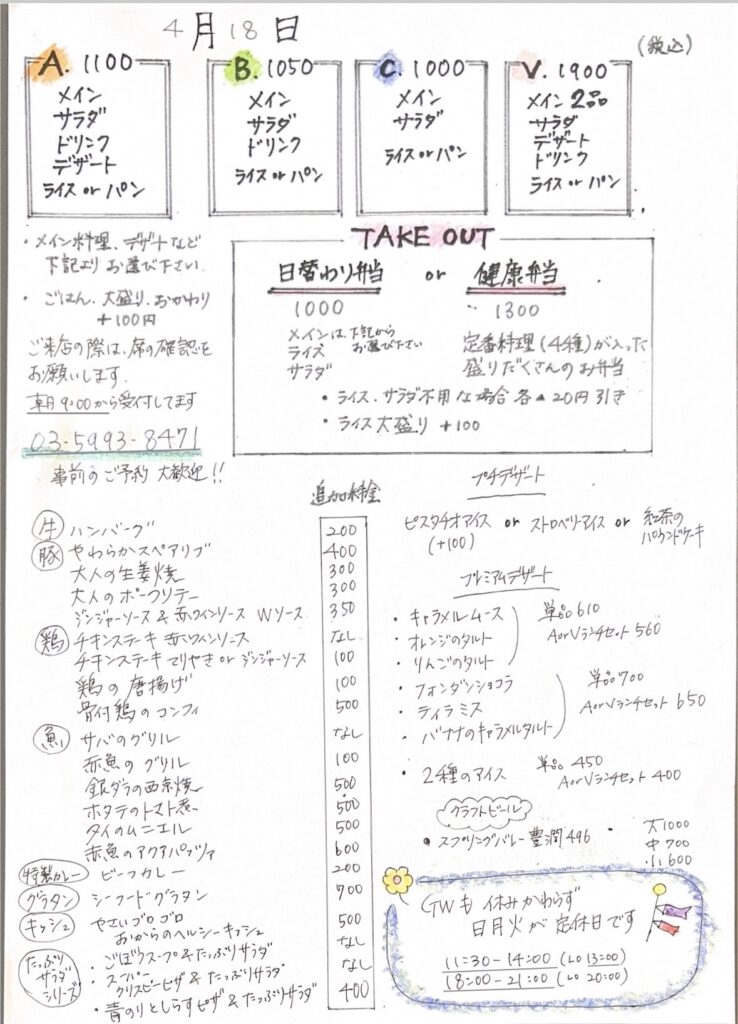 4月18日
(税込)
A. 1100
メイン
サラダ
ドリンク
デザート
ライス or パン
B. 1050
メイン
サラダ
ドリンク
ライス or パン
C. 1000
メイン
サラダ
ライス or パン
V. 1900
メイン 2品
サラダ
デザート
ドリンク
ライス or パン
・メイン料理、デザートなど
下記より お選び下さい.
・ごはん、大盛り、おかわり
+100円
ご来店の際は、席の確認を
お願いします.
朝 9:00から受付してます
03-5993-8471
事前のご予約 大歓迎!!
TAKE OUT
日替わり弁当 or 健康弁当
1000
メインは、下記から
お選び下さい
ライス
サラダ
1300
定番料理(4種)が入った
盛りだくさんのお弁当
・ライス、サラダ不用な場合 各▲20円引き
・ライス大盛り +100
追加料金
牛 ハンバーグ 200
豚 やわらかスペアリブ 400
大人の生姜焼 300
大人のポークソテー 300
ジンジャーソース & 赤ワインソース Wソース 350
鶏 チキンステーキ 赤ワインソース なし
チキンステーキ てりやき or ジンジャーソース 100
鶏の唐揚げ 100
骨付鶏のコンフィ 500
魚 サバのグリル なし
赤魚のグリル 100
銀ダラの西京焼 500
ホタテのトマト煮 500
タイのムニエル 500
赤魚のアクアパッツァ 600
特製カレー ビーフカレー 200
グラタン シーフードグラタン 700
キッシュ やさいゴロゴロ
おからのヘルシーキッシュ 500
たっぷりサラダシリーズ
・ごぼうスープ&たっぷりサラダ なし
・スーパークリスピーピザ & たっぷりサラダ なし
・青のりとしらすピザ & たっぷりサラダ 400
プチデザート
ピスタチオアイス or ストロベリーアイス or 紅茶の
(+100) パウンドケーキ
プレミアムデザート
・キャラメルムース
・オレンジのタルト
・りんごのタルト
単品 610
A or Vランチセット 560
・フォンダンショコラ
・ティラミス
・バナナのキャラメルタルト
単品 700
A or Vランチセット 650
・2種のアイス 単品 450
A or Vランチセット 400
クラフトビール
・スプリングバレー 豊潤496 ・大1000
中 700
小 600
GWも 休みかわらず
日月火が 定休日です
11:30-14:00 (LO 13:00)
18:00-21:00 (LO 20:00)